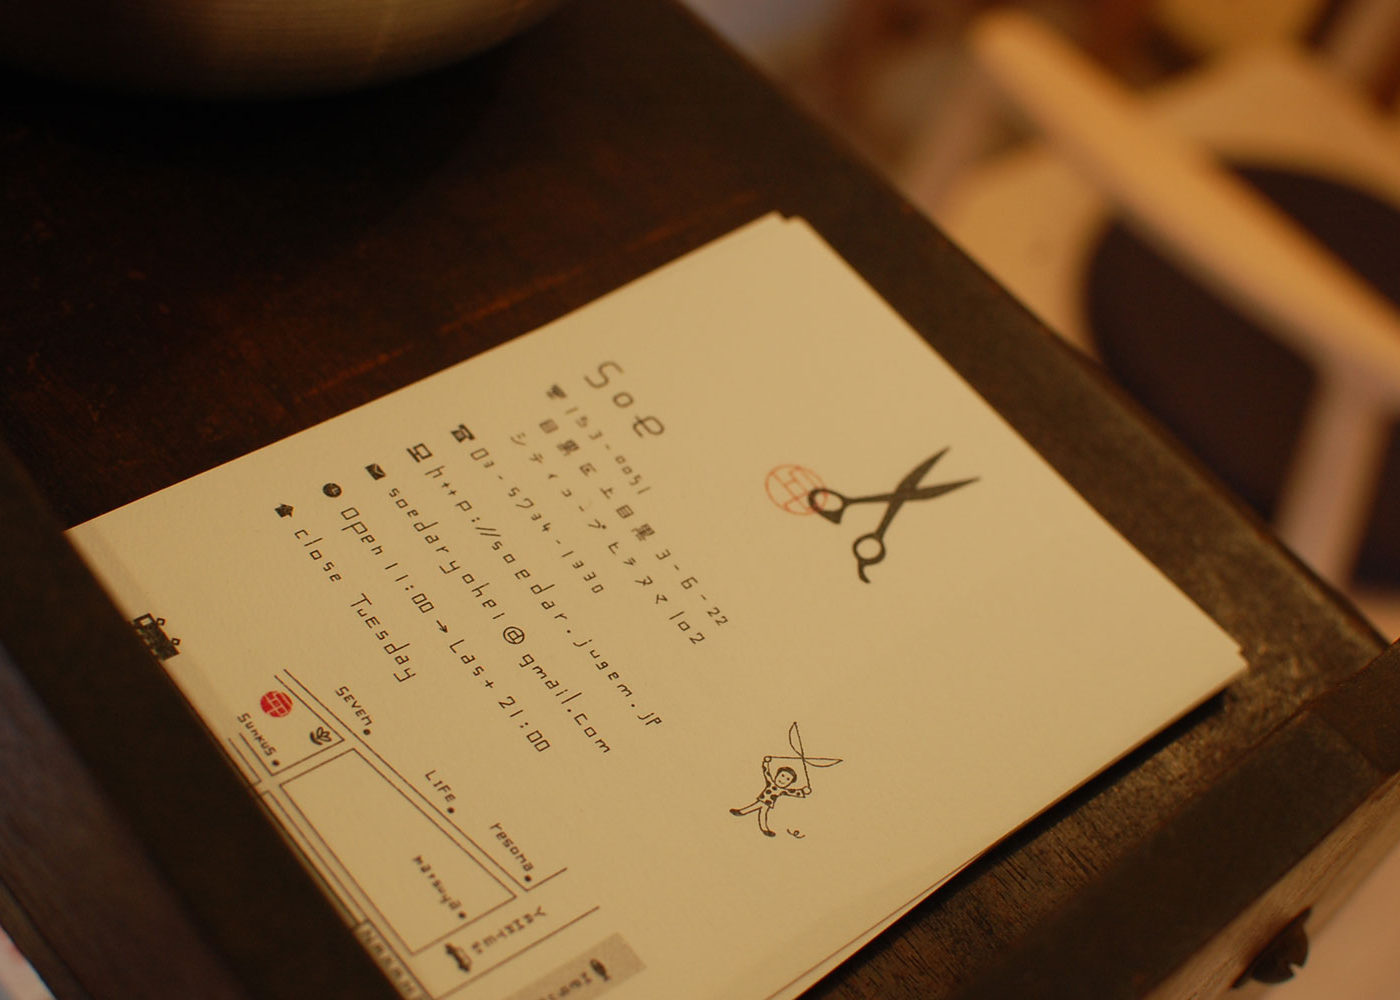 soe
153-0051
目黒区上目黒 3-6-22
シティコープヒラヌマ 102
03-5734-1330
http://soedar.jugem.jp
soedaryohei@gmail.com
open 11:00 → Last 21:00
close Tuesday
SEVEN
SUNKUS
LIFE
resona
matsuya